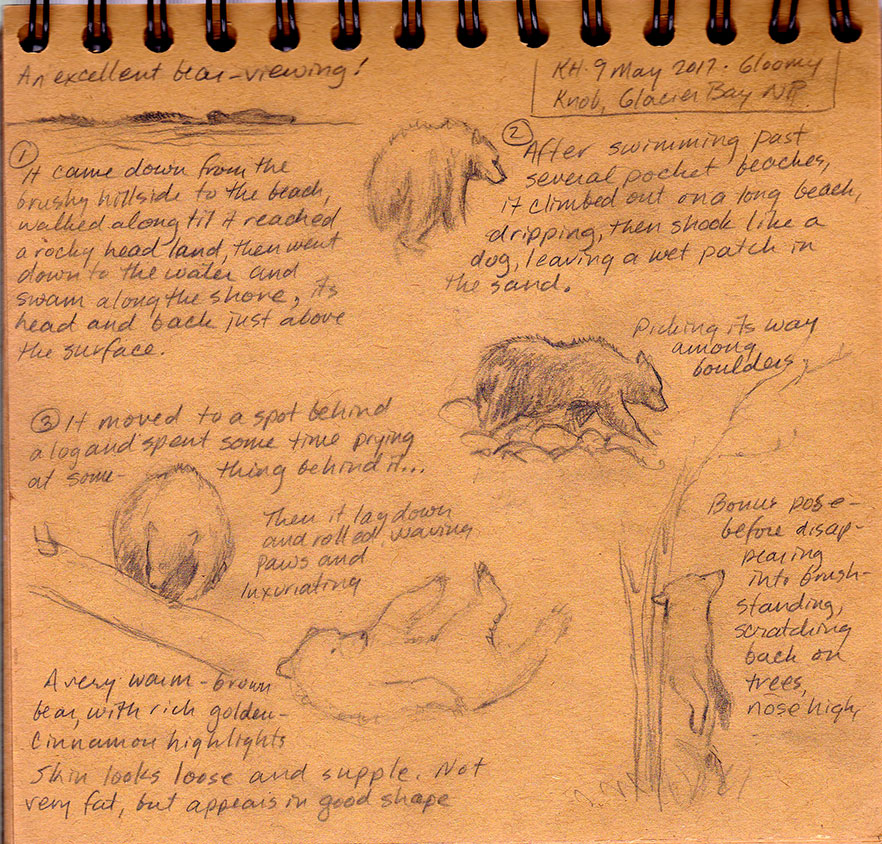 An excellent bear-viewing!
KH. 9 May 2017. Gloomy
Knob, Glacier Bay NP.
① It came down from the
brushy hillside to the beach,
walked along til it reached
a rocky head land, then went
down to the water and
swam along the shore, its
head and back just above
the surface.
② After swimming past
several pocket beaches,
it climbed out on a long beach,
dripping, then shook like a
dog, leaving a wet patch in
the sand.
Picking its way
among
boulders
③ It moved to a spot behind
a log and spent some time prying
at some- thing behind it...
Then it lay down
and rolled, waving
paws and
luxuriating
Bonus pose-
before disap-
pearing
into brush-
standing,
scratching
back on
trees,
nose high.
A very warm-brown
bear, with rich golden-
cinnamon highlights
Skin looks loose and supple. Not
very fat, but appears in good shape